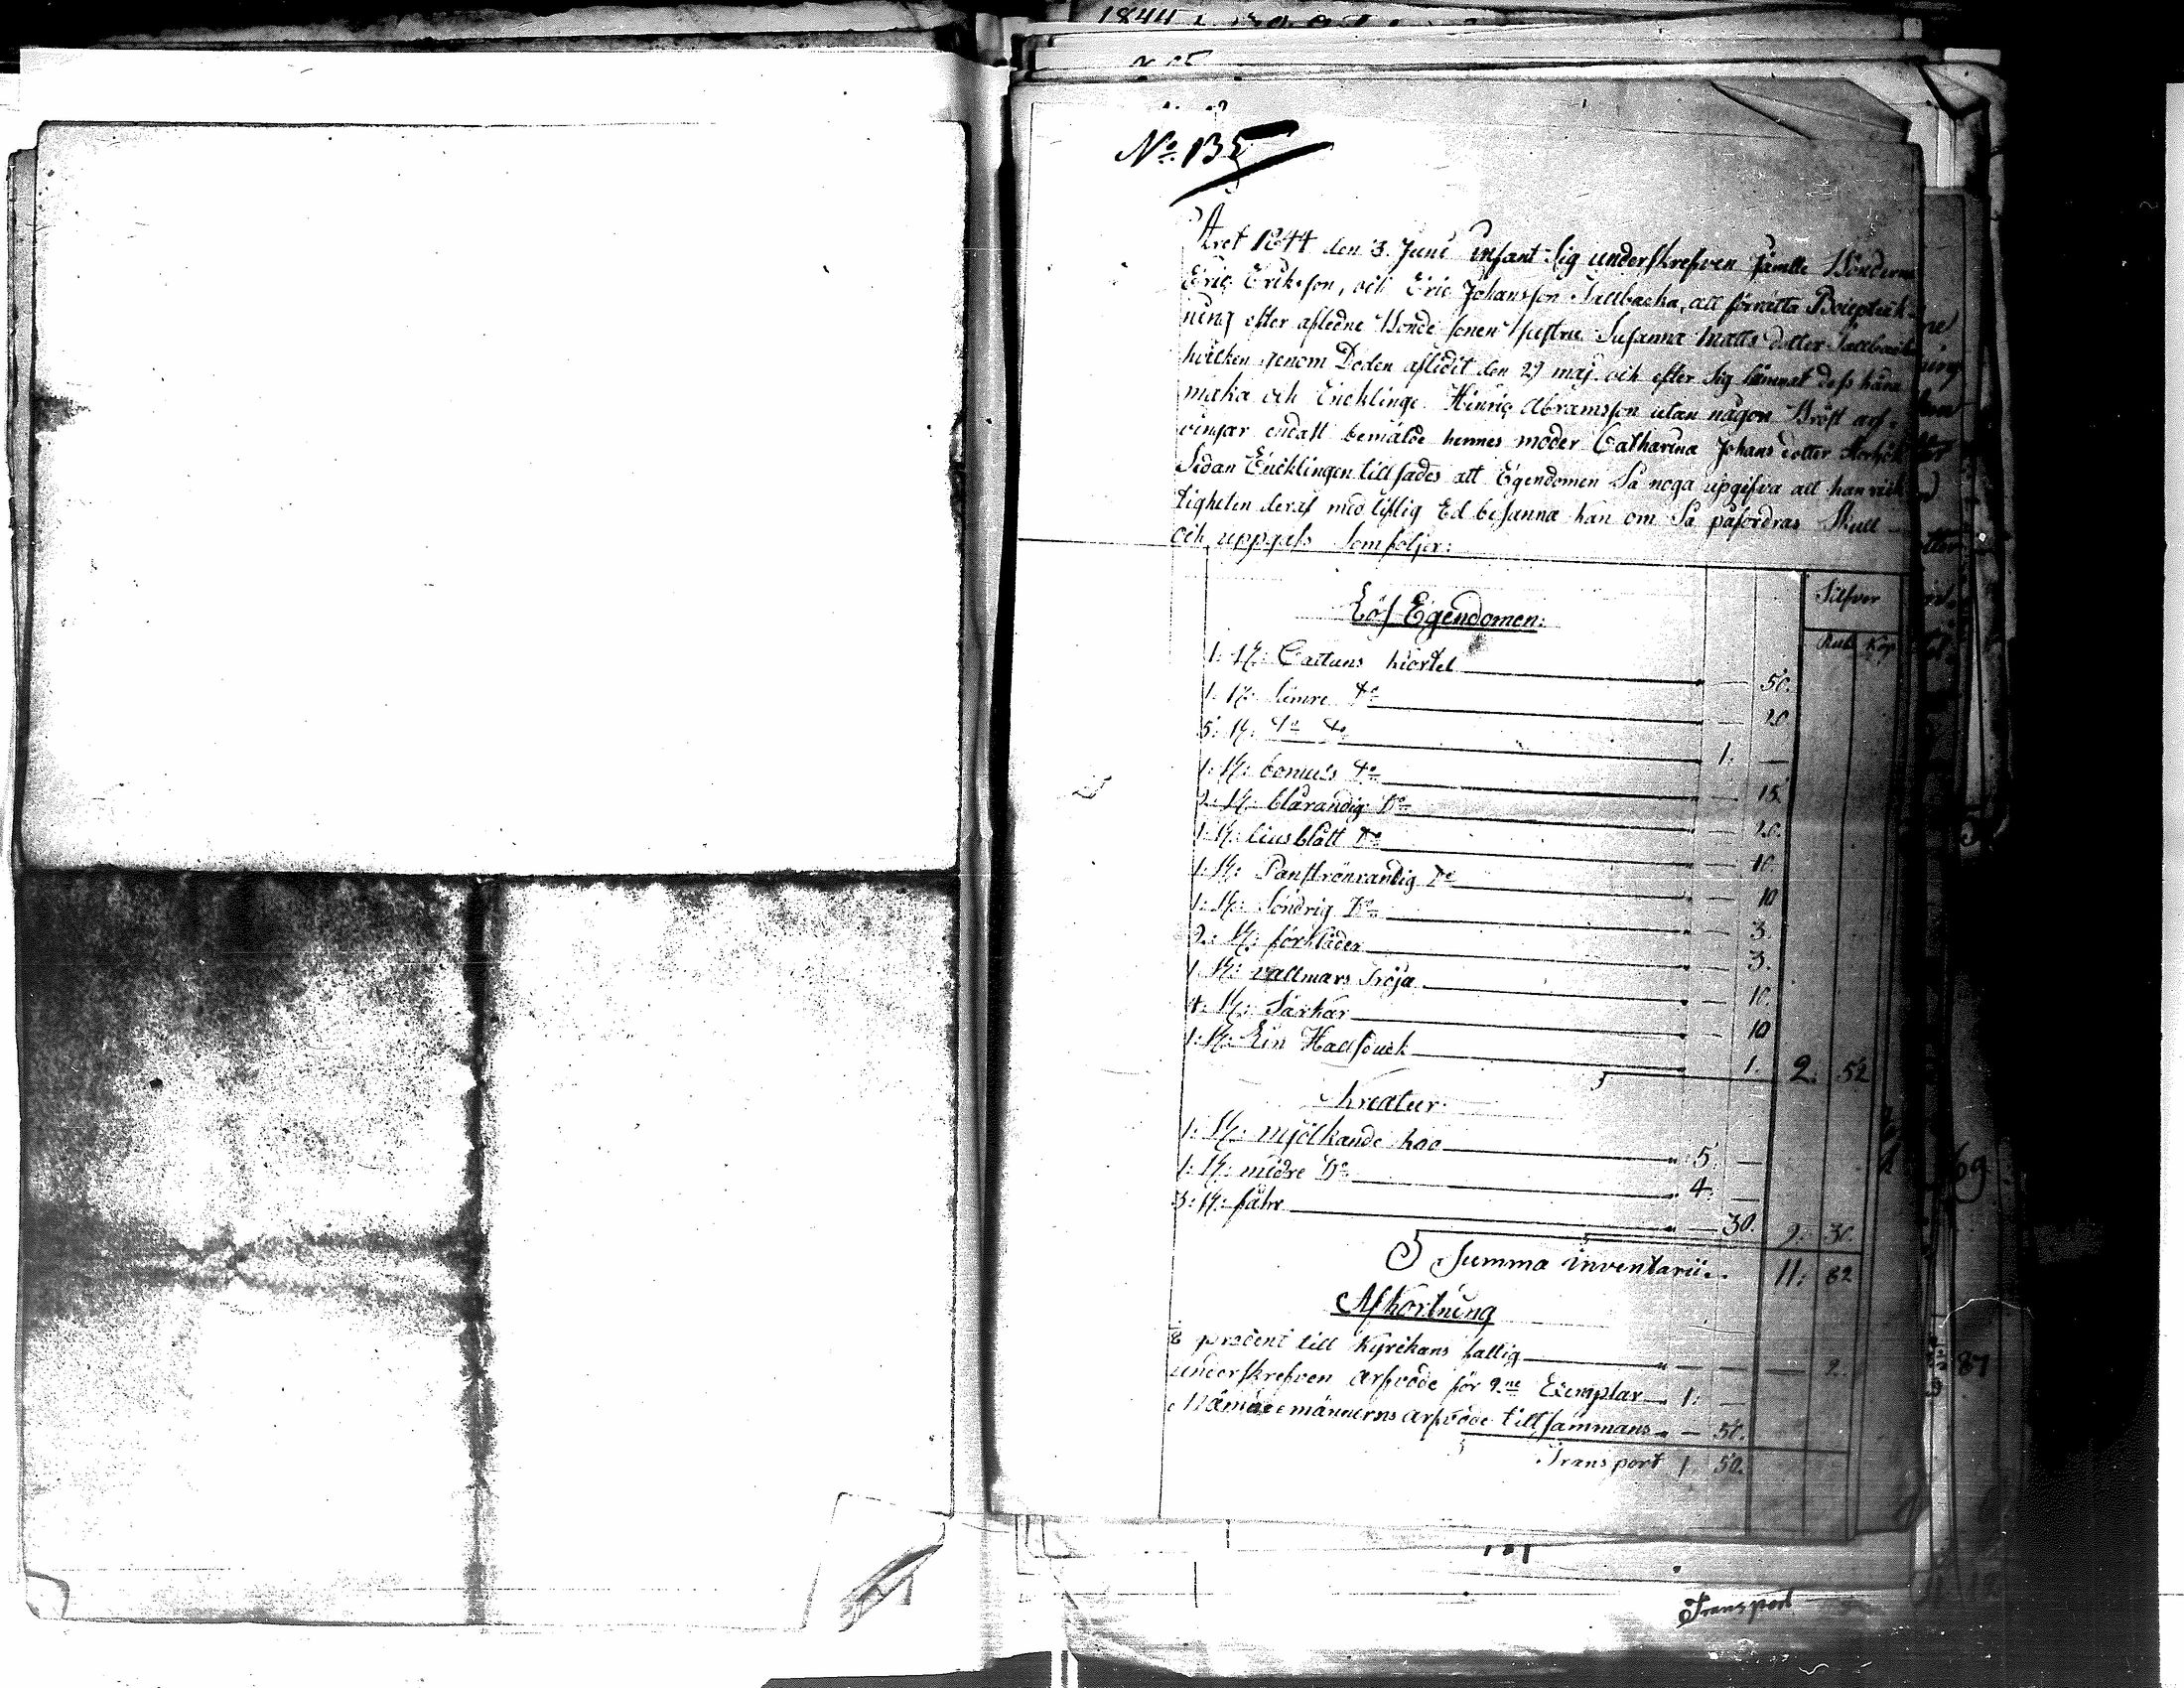 No. 135
Året 1844 den 3. Juni infant Sig underskrefven jämte Bönderne
Eric Eriksson, och Eric Johansson Tallbacka, att förrätta Boupteck-
ning efter afledne Bonde sonen hustru Susanna Matts dotter Tallbacka
hvilken genom Döden aflidit den 29 maj och efter Sig lämnat dess kära
maka och Encklinge Hinric Abramsson utan någon Bröst arf-
vingar endast bemälde hennes moder Catharina Johans dotter
Sedan Encklingen tillsades att Egendomen Så noga upgifva att han rick
tigheten deraf med liflig Ed besanna kan om Så påfordras Skull
och uppgafs Som följer:
Silfver
Rub. Kop.
Lös Egendomen:
1: st: Cattuns kiortel 50.
1: st: Sämre do 20
5: st: do do 1. —
1: st: bomuls do 15.
2: st: blårandig Do 20.
1: st: liusblått Do 10.
1: st: Do 10
1: st: Söndrig Do 3.
2: st: förkläder 3.
1: st: vallmars Tröja 10.
4: st: Särkar 10
1: st: Ein Hallsduck 1. 2. 52
Kreatur
1: st: mjölkande koo 5. —
1: st: midre Do 4. —
3: st: fåhr 30. 9. 30.
Summa inventarii. 11. 82
Afkortning
procent till Kyrckans fattig — — 2.
underskrefven arfvode för 2ne Exemplar 1: —
männerns arfvode tillsammans — 50.
Transport 1. 50.
Transport